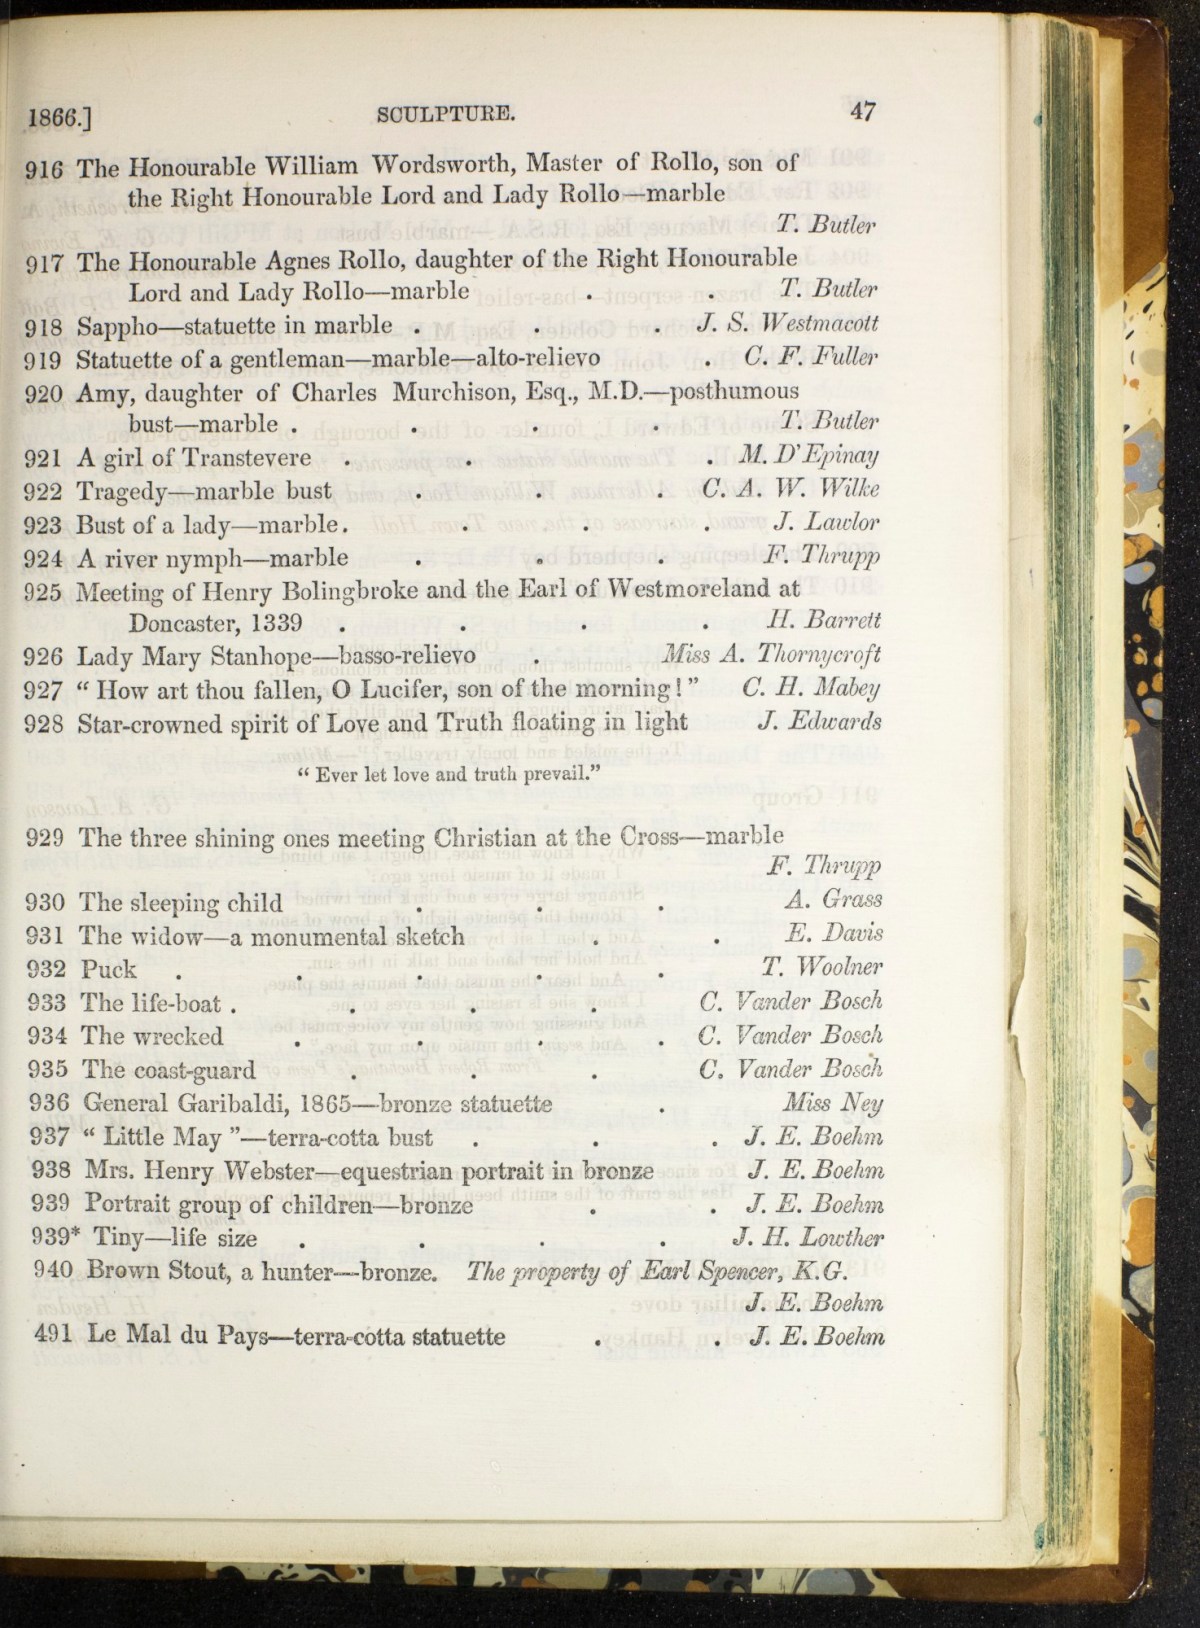 1866.] SCULPTURE. 47
916 The Honourable William Wordsworth, Master of Rollo, son of
the Right Honourable Lord and Lady Rollo—marble
T. Butler
917 The Honourable Agnes Rollo, daughter of the Right Honourable
Lord and Lady Rollo—marble . . T. Butler
918 Sappho—statuette in marble . . . J. S. Westmacott
919 Statuette of a gentleman—marble—alto-relievo . C. F. Fuller
920 Amy, daughter of Charles Murchison, Esq., M.D.—posthumous
bust—marble . . . . T. Butler
921 A girl of Transtevere . . . . M. D'Epinay
922 Tragedy—marble bust . . . C. A. W. Wilke
923 Bust of a lady—marble . . . . J. Lawlor
924 A river nymph—marble . . . F. Thrupp
925 Meeting of Henry Bolingbroke and the Earl of Westmoreland at
Doncaster, 1339 . . . . H. Barrett
926 Lady Mary Stanhope—basso-relievo . Miss A. Thornycroft
927 “ How art thou fallen, O Lucifer, son of the morning! ” C. H. Mabey
928 Star-crowned spirit of Love and Truth floating in light J. Edwards
“ Ever let love and truth prevail.”
929 The three shining ones meeting Christian at the Cross—marble
F. Thrupp
930 The sleeping child . . . A. Grass
931 The widow—a monumental sketch . . E. Davis
932 Puck . . . . . T. Woolner
933 The life-boat . . . . C. Vander Bosch
934 The wrecked . . . . C. Vander Bosch
935 The coast-guard . . . C. Vander Bosch
936 General Garibaldi, 1865—bronze statuette . Miss Ney
937 “ Little May ”—terra-cotta bust . . . J. E. Boehm
938 Mrs. Henry Webster—equestrian portrait in bronze J. E. Boehm
939 Portrait group of children—bronze . . J. E. Boehm
939* Tiny—life size . . . . J. H. Lowther
940 Brown Stout, a hunter—bronze. The property of Earl Spencer, K.G.
J. E. Boehm
491 Le Mal du Pays—terra-cotta statuette . . J. E. Boehm